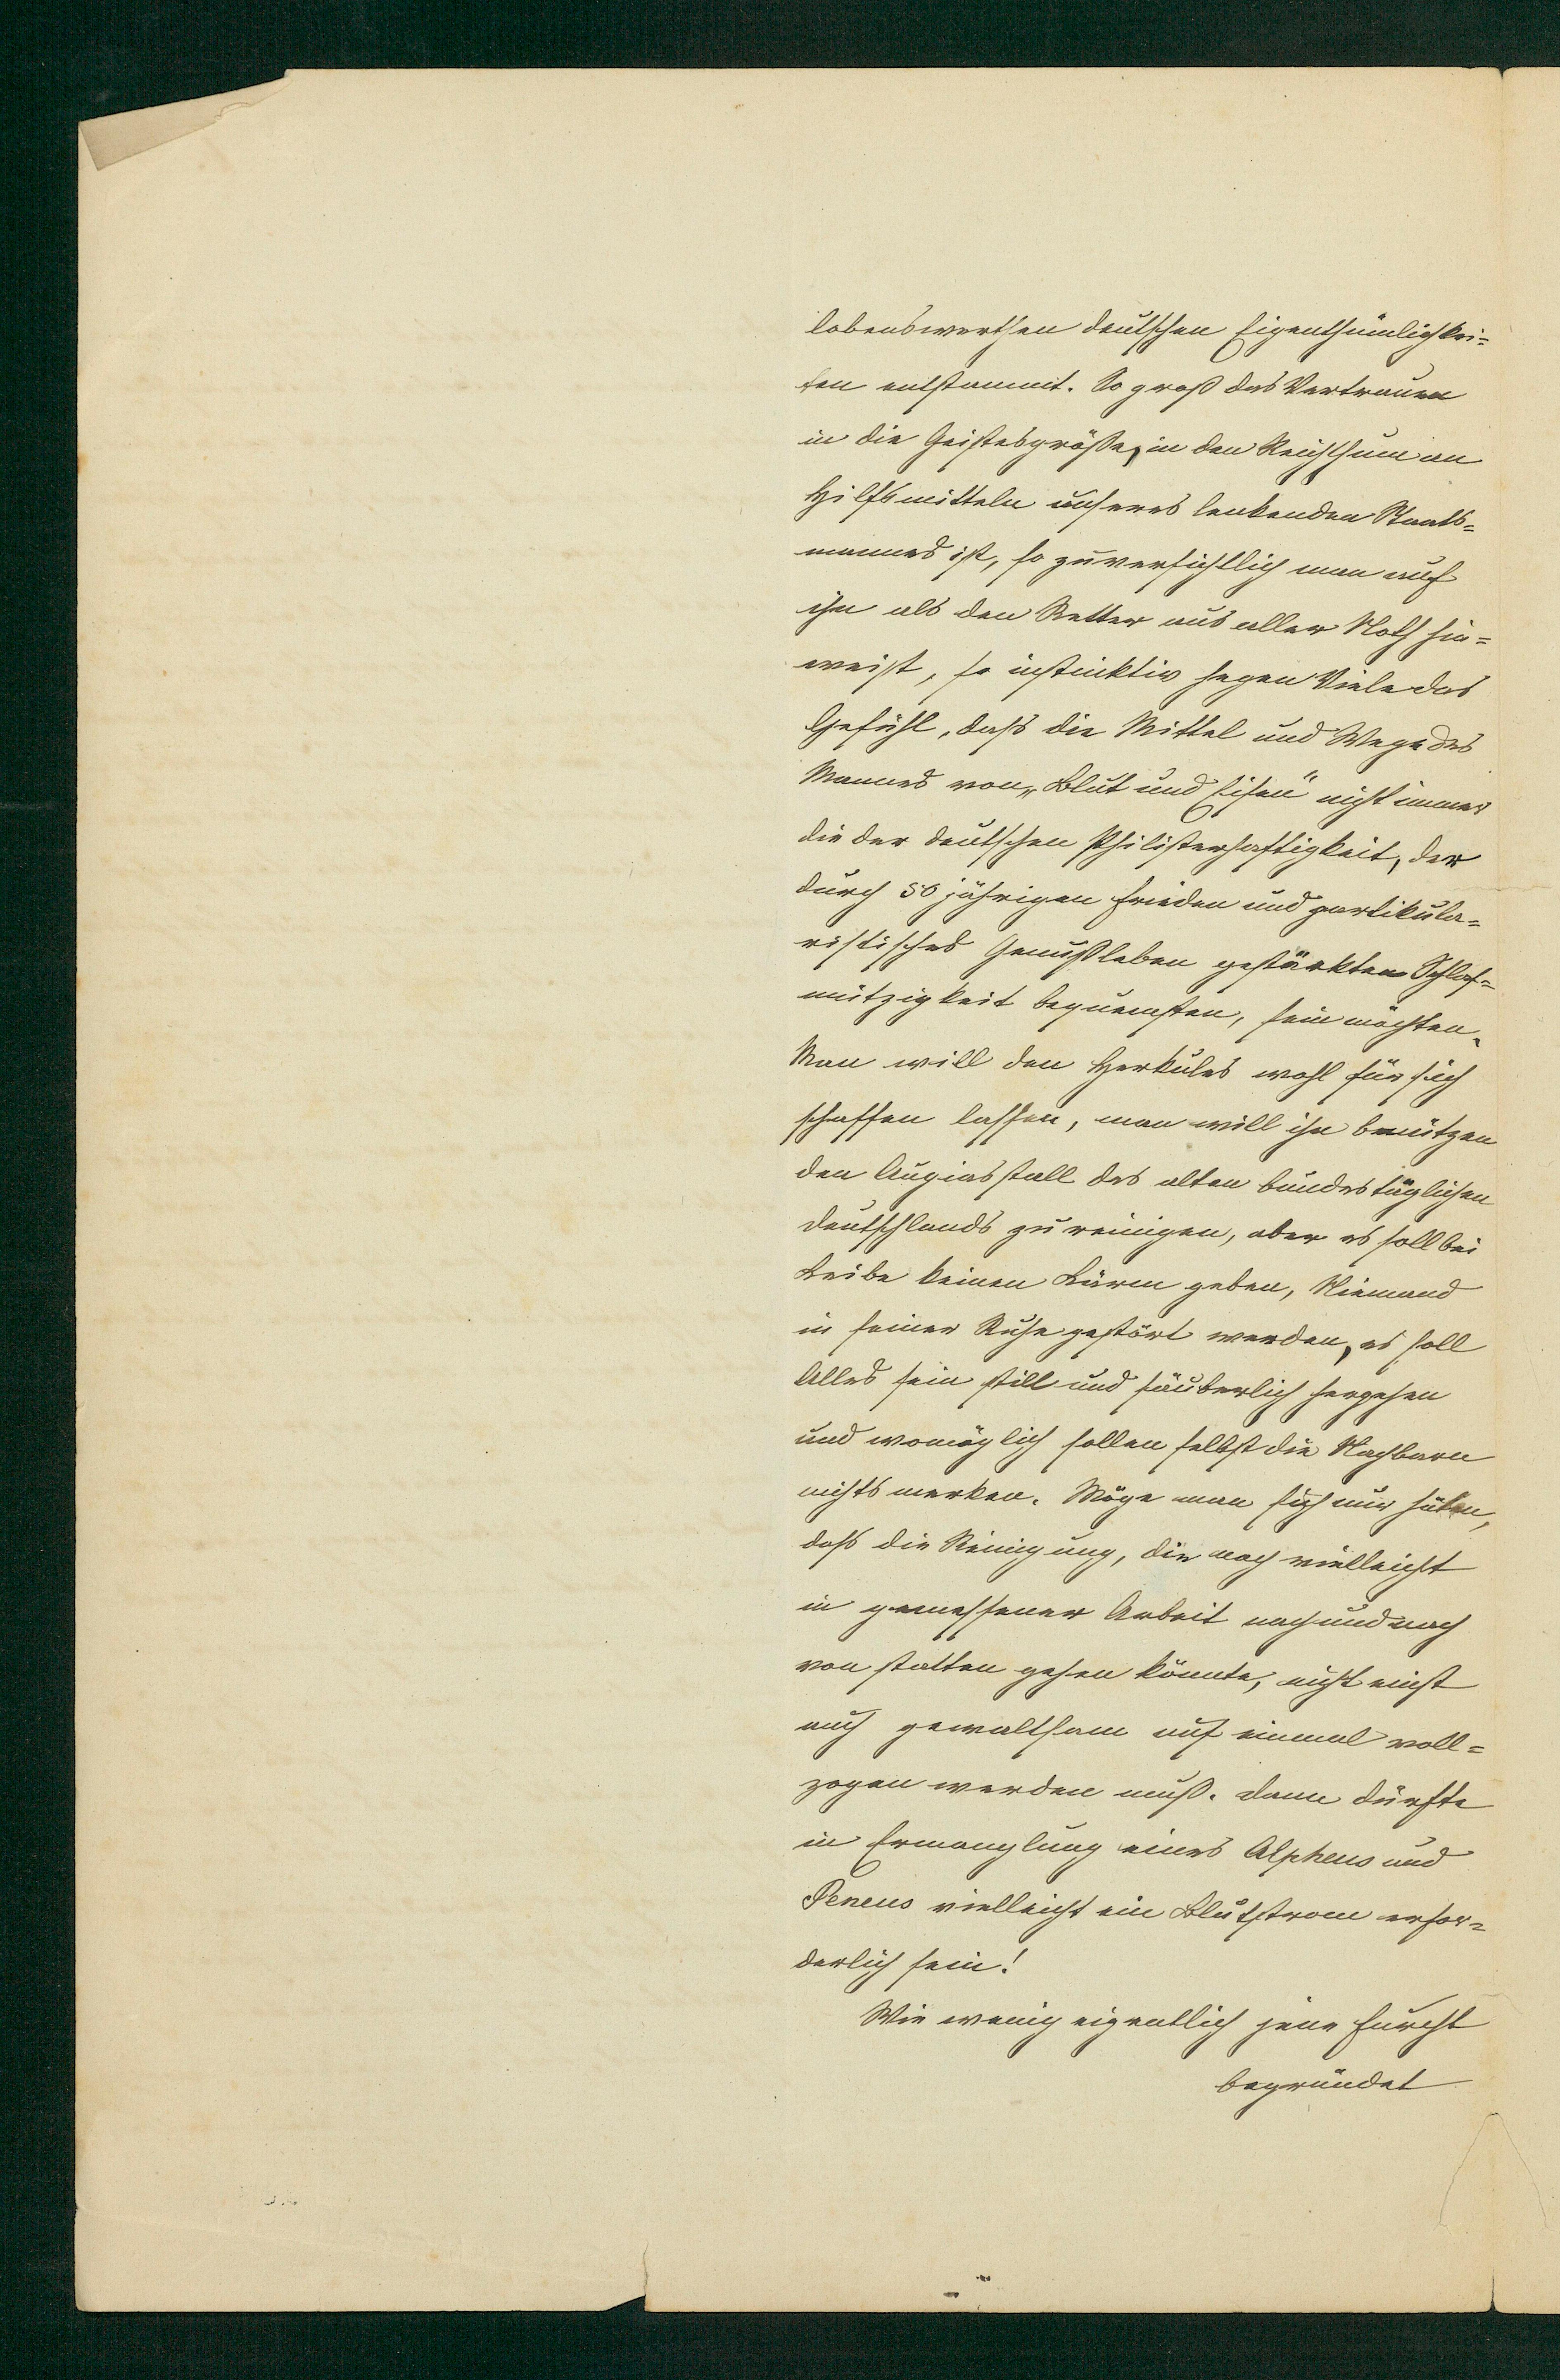 lobenswerthen deutschen Eigenthümlichkei=
ten entstammt. So groß das Vertrauen
in die Geistesgröße, in den Reichthum an
Hilfsmitteln unseres lenkenden Staats=
mannes ist, so zuversichtlich man auf
ihn als den Retter aus aller Noth hin=
weist, so instinktiv hegen Viele das
Gefühl, daß die Mittel und Wege des
Mannes von „Blut und Eisen" nicht immer
die der deutschen Philisterhaftigkeit, der
durch 50 jährigen Frieden und partikula=
ristisches Genußleben gestärkten Schlaf=
mützigkeit bequemsten, sein möchten.
Man will den Herkules wohl für sich
schaffen lassen, man will ihn benützen
den Augiasstall des alten bundestäglichen
Deutschlands zu reinigen, aber es soll bei
Leibe keinen Lärm geben, Niemand
in seiner Ruhe gestört werden, es soll
Alles fein still und säuberlich hergehen
und womöglich sollen selbst die Nachbarn
nichts merken. Möge man sich nur hüten,
daß die Reinigung, die noch vielleicht
in gemessener Arbeit nach und nach
von statten gehen könnte, nicht einst
auch gewaltsam auf einmal voll=
zogen werden muß. Dann dürfte
in Ermanglung eines Alpheus und
Peneus vielleicht ein Blutstrom erfor=
derlich sein!
Wie wenig eigentlich jene Furcht
begründet